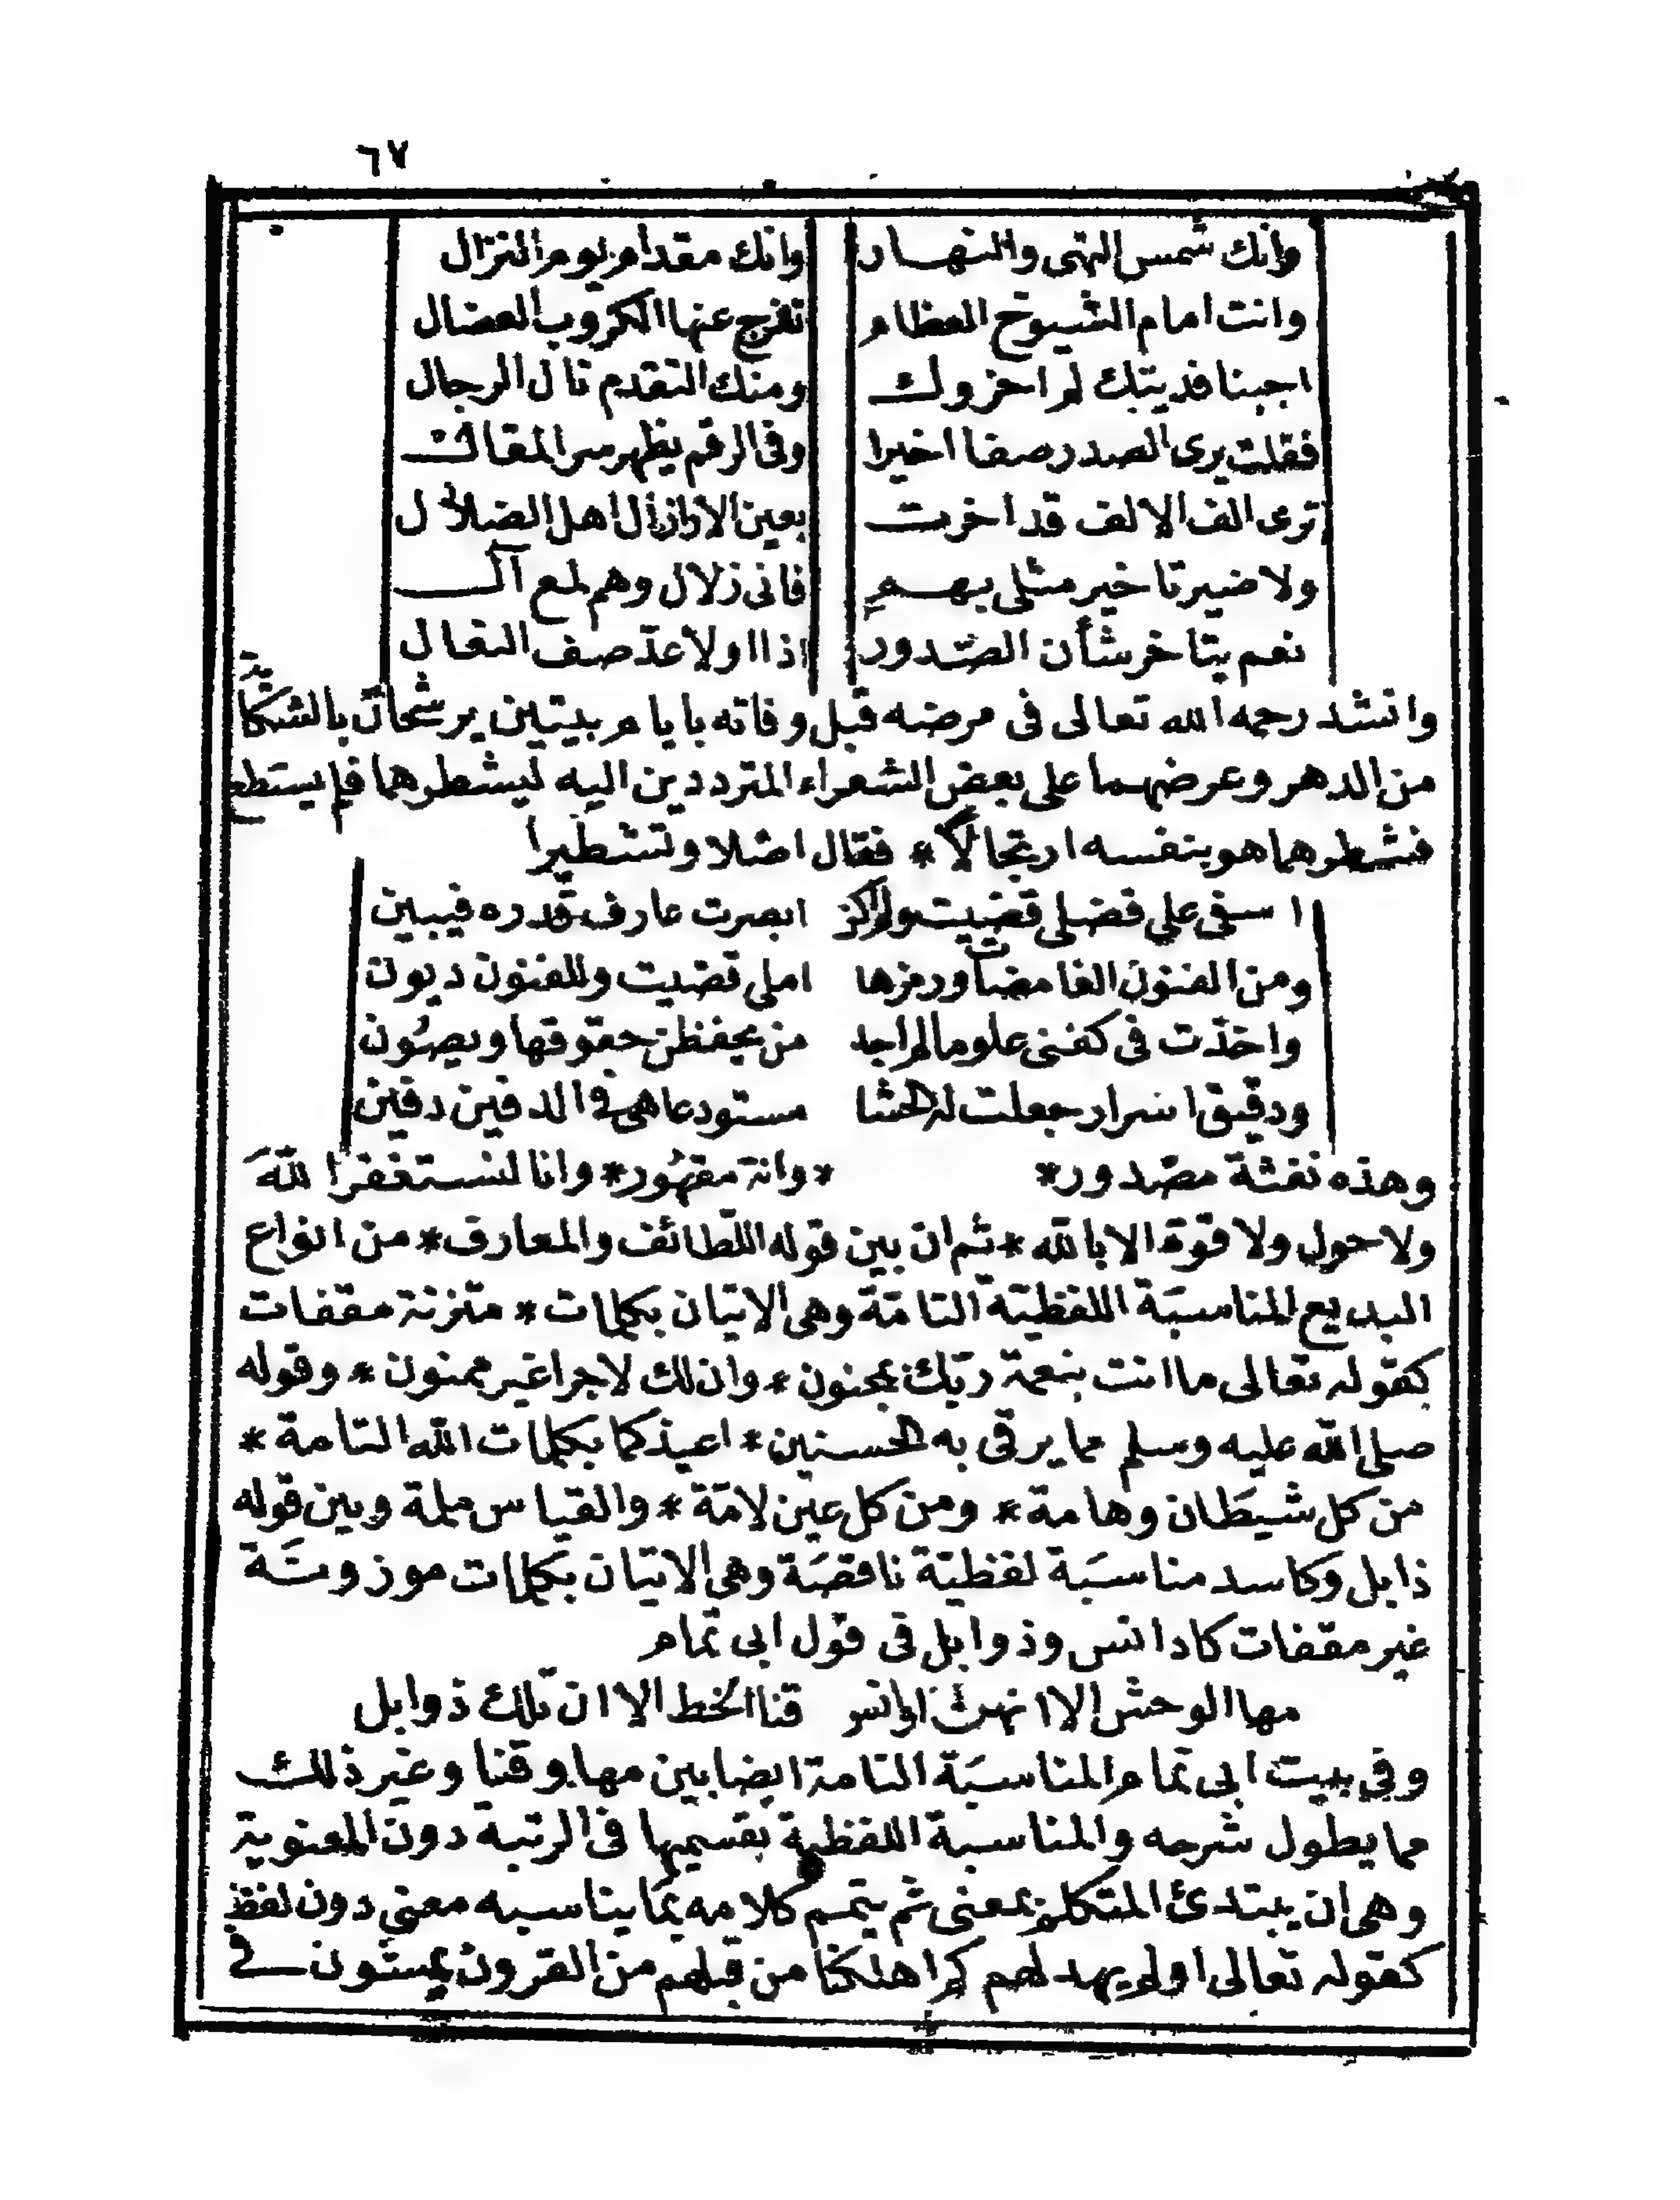 ٦٧
وانك شمس النهى والنهار وانك مقدام يوم النزال
وانت امام الشيوخ العظام تفرج عنها الكروب العضال
اجبنا فديتك لم اخروك ومنك التقدم قال الرجال
فقلت يرى الصدر صفا اخيرا وفى الرقم يظهر سر المقال
ترى الف الالف قد اخرت بعين الاراذل اهل الضلال
ولا ضير تاخير مثلى بهم فانى زلال وهم لمع آل
نعم يتاخر شأن الصدور اذا اولا عد صف النعال
وانشد رحمه الله تعالى فى مرضه قبل وفاته بايام بيتين يرشحان بالشكاية
من الدهر وعرضهما على بعض الشعراء المترددين اليه ليشطرهما فلم يستطع
فشطرهما هو بنفسه ارتجالا * فقال اصلا وتشطيرا
اسفى على فضلى قضيت ولم اكن ابصرت عارف قدره فيبين
ومن الفنون الغامضات ورمزها املى قضيت وللفنون ديون
واخذت فى كفنى علوما لم اجد من يحفظن حقوقها ويصون
ودقيق اسرار جعلت له الحشا مستودعا هى فى الدفين دفين
وهذه نفثة مصدور* *وانة مقهور* وانا لنستغفر الله
ولا حول ولا قوة الا بالله * ثم ان بين قوله اللطائف والمعارف * من انواع
البديع المناسبة اللفظية التامة وهى الاتيان بكلمات * متزنة مقفات
كقوله تعالى ما انت بنعمة ربك بمجنون * وان لك لاجرا غير ممنون * وقوله
صلى الله عليه وسلم مما يرقى به الحسنين * اعيذكما بكلمات الله التامة *
من كل شيطان وهامة * ومن كل عين لامة * والقياس ملمة وبين قوله
ذابل وكاسد مناسبة لفظية ناقصة وهى الاتيان بكلمات موزونة
غير مقفات كاد انس وذوابل فى قول ابى تمام
مها الوحش الا انهن اوانس قنا الخط الا ان تلك ذوابل
وفى بيت ابى تمام المناسبة التامة ايضا بين مها وقنا وغير ذلك
مما يطول شرحه والمناسبة اللفظية بقسميها فى الرتبة دون المعنوية
وهى ان يبتدئ المتكلم بمعنى ثم يتمم كلامه بما يناسبه معنى دون لفظ
كقوله تعالى اولم يهد لهم كم اهلكنا من قبلهم من القرون يمشون فى